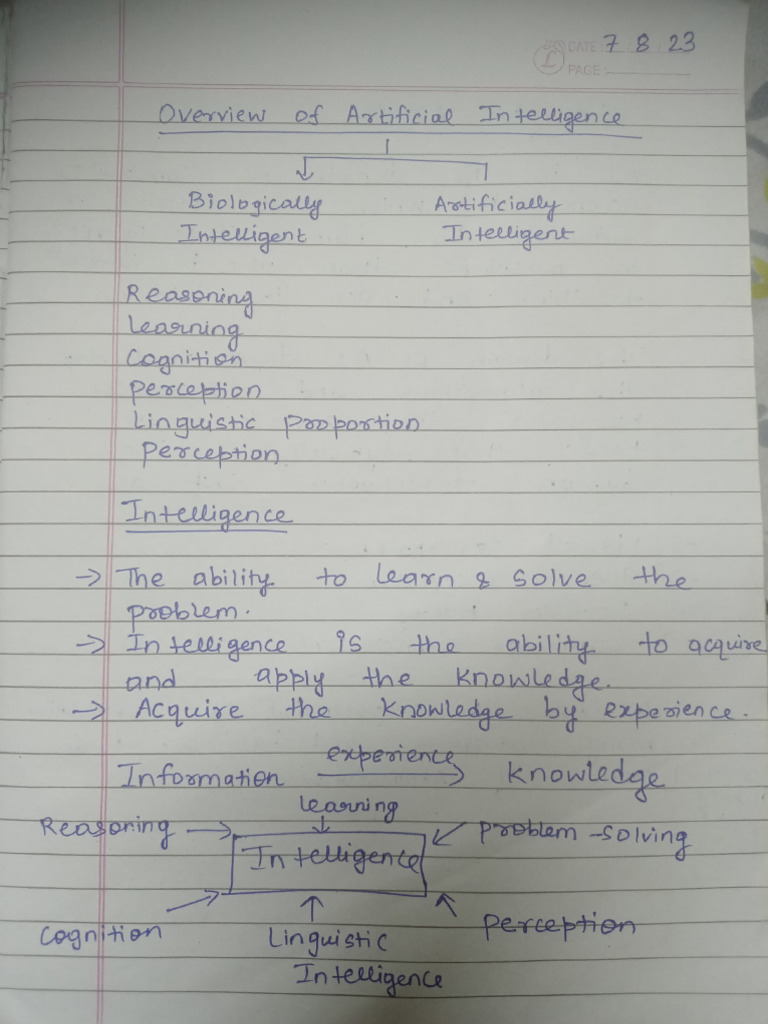 DATE 7 8 23
PAGE
Overview of Artificial Intelligence
Biologically Artificially
Intelligent Intelligent
Reasoning
Learning
Cognition
Perception
Linguistic proportion
Perception
Intelligence
→ The ability to learn & solve the
problem.
→ Intelligence is the ability to acquire
and apply the knowledge.
→ Acquire the knowledge by experience.
experience
Information → knowledge
learning
Reasoning → problem-solving
Intelligence
Cognition Linguistic Perception
Intelligence